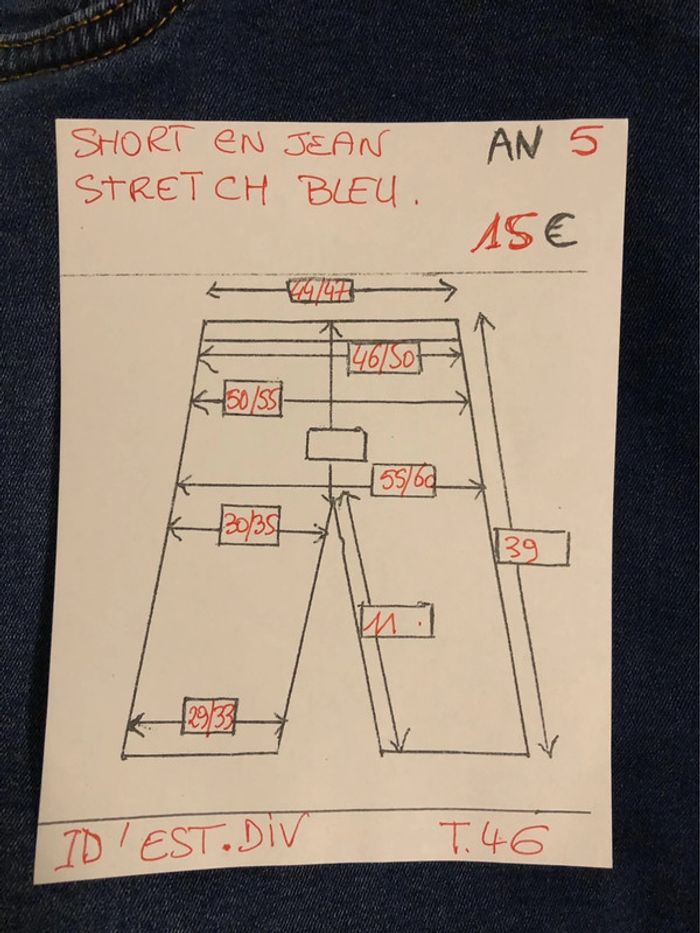 SHORT EN JEAN AN 5
STRETCH BLEU.
15€
44/47
46/50
50/55
55/60
30/35
39
11.
29/33
ID'EST.DIV T.46